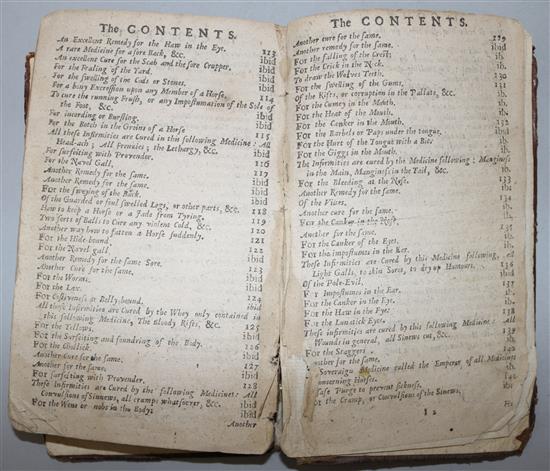 The CONTENTS.
An Excellent Remedy for the Haw in the Eye. 113
A rare Medicine for a sore Back, &c. ibid
An excellent Cure for the Scab and the sore Crupper. ibid
For the Fealing of the Yard. ibid
For the swelling of the Cods or Stones. ibid
For a bony Excression upon any Member of a Horse. 114
To cure the running Frush, or any Impostumation of the Sole of
the Foot, &c. ibid
For incording or Bursting. ibid
For the Botch in the Groins of a Horse 115
All these Infirmities are cured in this following Medicine: All
Head-ach; All Frenzies; the Lethargy, &c. ibid
For surfeiting with Provender. ibid
For the Navel Gall. 116
Another Remedy for the same. 117
Another Remedy for the same. ibid
For the swaying of the Back. ibid
Of the Gourded or foul swelled Legs, or other parts, &c. ibid
How to keep a Horse or a Jade from Tyring. 118
Two sorts of Balls to Cure any violent Cold, &c. 119
Another way how to fatten a Horse suddenly. 120
For the Hide-bound. 121
For the Navel gall. 122
Another Remedy for the same Sore. ibid
Another Cure for the same. 123
For the Worms. ibid
For the Lax. ibid
For Costiveness or Belly-bound. 124
All these Infirmities are Cured by the Whey only contained in
this following Medicine, The Bloody Rifts, &c. ibid
For the Yellows. 125
For the Surfeiting and foundring of the Body. ibid
For the Chollick. 126
Another Cure for the same. ibid
Another for the same. 127
For surfeiting with Provender. ibid
These Infirmities are Cured by the following Medicine: All 128
Convulsions of Sinnews, all cramps whatsoever, &c. ibid
For the Wens or nobs in the Body: ibid
Another
The CONTENTS.
Another cure for the same. 129
Another remedy for the same. ibid
For the falling of the Crest. ibid
For the Crick in the Neck. ibid
To draw the Wolves Teeth. 130
For the swelling of the Gums. 131
Of the Rifts, or corruption in the Pallats, &c. ibid
For the Camery in the Mouth. ibid
For the Heat of the Mouth. ibid
For the Canker in the Mouth. 132
For the Barbels or Paps under the tongue. ibid
For the Hurt of the Tongue with a Bite ibid
For the Giggs in the Mouth. ibid
The Infirmities are cured by the Medicine following: Manginess
in the Main, Manginess in the Tail, &c. ibid
For the Bleeding at the Nose. 133
Another Remedy for the same. ibid
Of the Vives. 134
Another cure for the same. ibid
For the Canker in the Nose. ibid
Another for the same. 135
For the Canker of the Eyes. ibid
For the impostumes in the Ear. ibid
These Infirmities are cured by this Medicine following, all
Light Galls, to skin Sores, to dry up Humours, 136
Of the Pole-Evil. ibid
For Impostumes in the Ear. 137
For the Canker in the Eye. ibid
For the Haw in the Eye ibid
For the Lunatick Eyes. 138
These infirmities are cured by this following Medicine: All
Wounds in general, all Sinews cut, &c. 139
For the Staggers ibid
Another for the same. 140
Soveraign Medicine called the Emperor of all Medicines
concerning Horses. ibid
safe Purge to prevent sickness. ibid
For the Cramp, or Convulsions of the Sinews. ibid